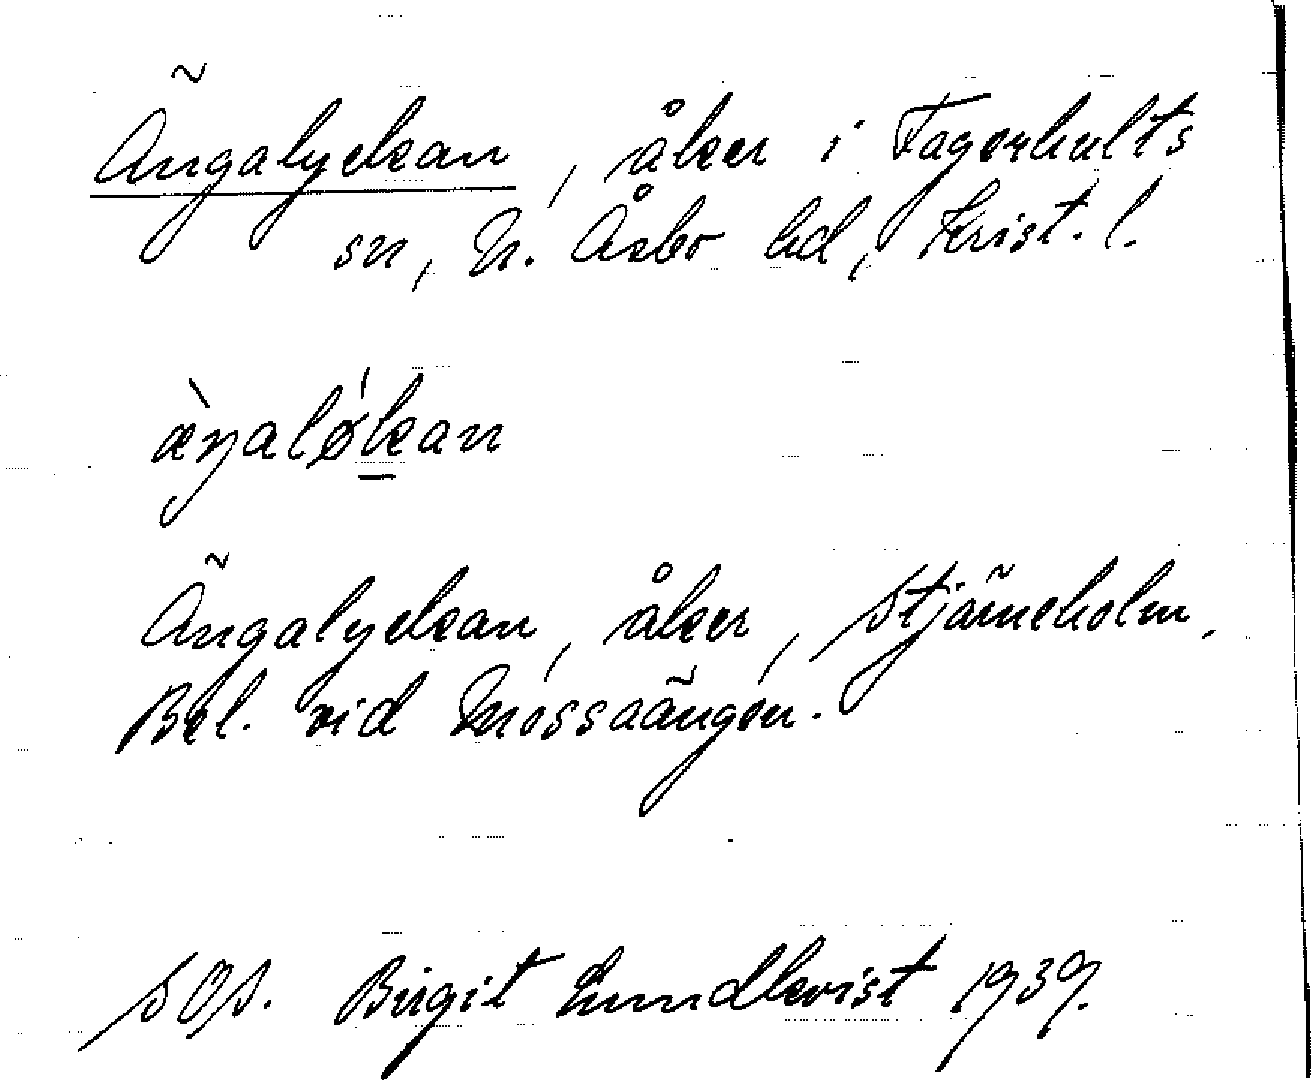 Ängalyckan, åker i Fagerhults
sn, N. Åsbo hd, Krist. l.
æ̀ŋalǿkan
Ängalyckan, åker, Stjärneholm.
Bel. vid Mossaängen.
SOS. Birgit Lundkvist 1939.